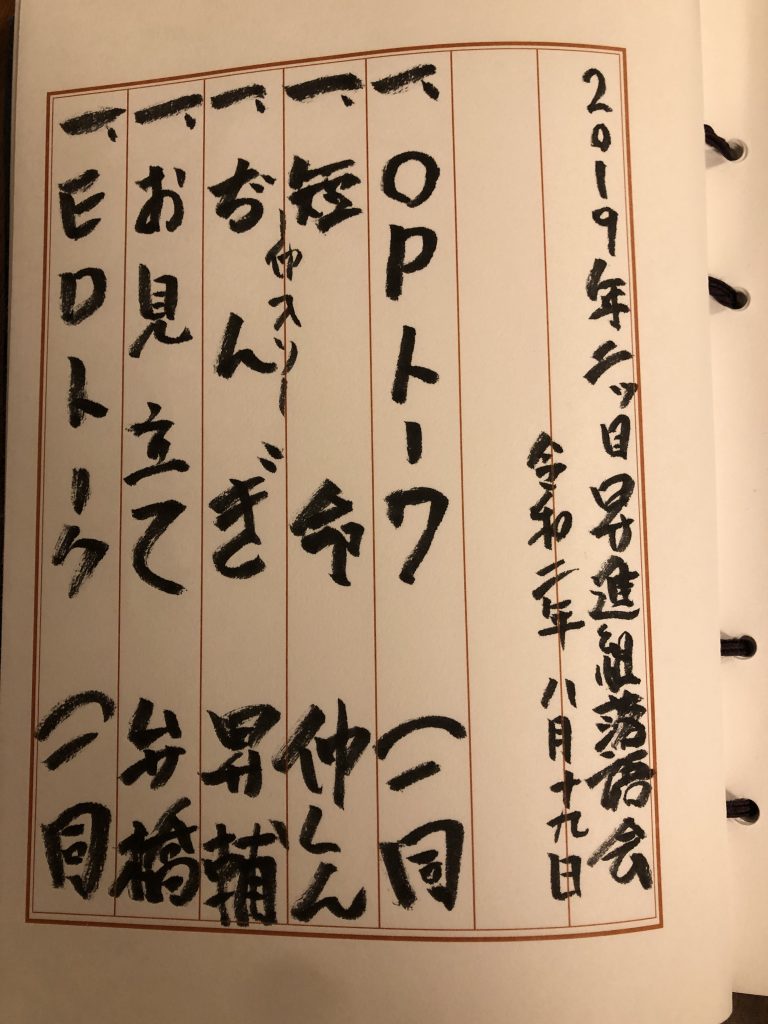 2019年二ッ目昇進組落語会
令和二年 八月十九日
一、OPトーク 一同
一、短命 仲しん
ー仲入りー
一、ぢんぎ 昇輔
一、お見立て 弁橋
一、EDトーク 一同